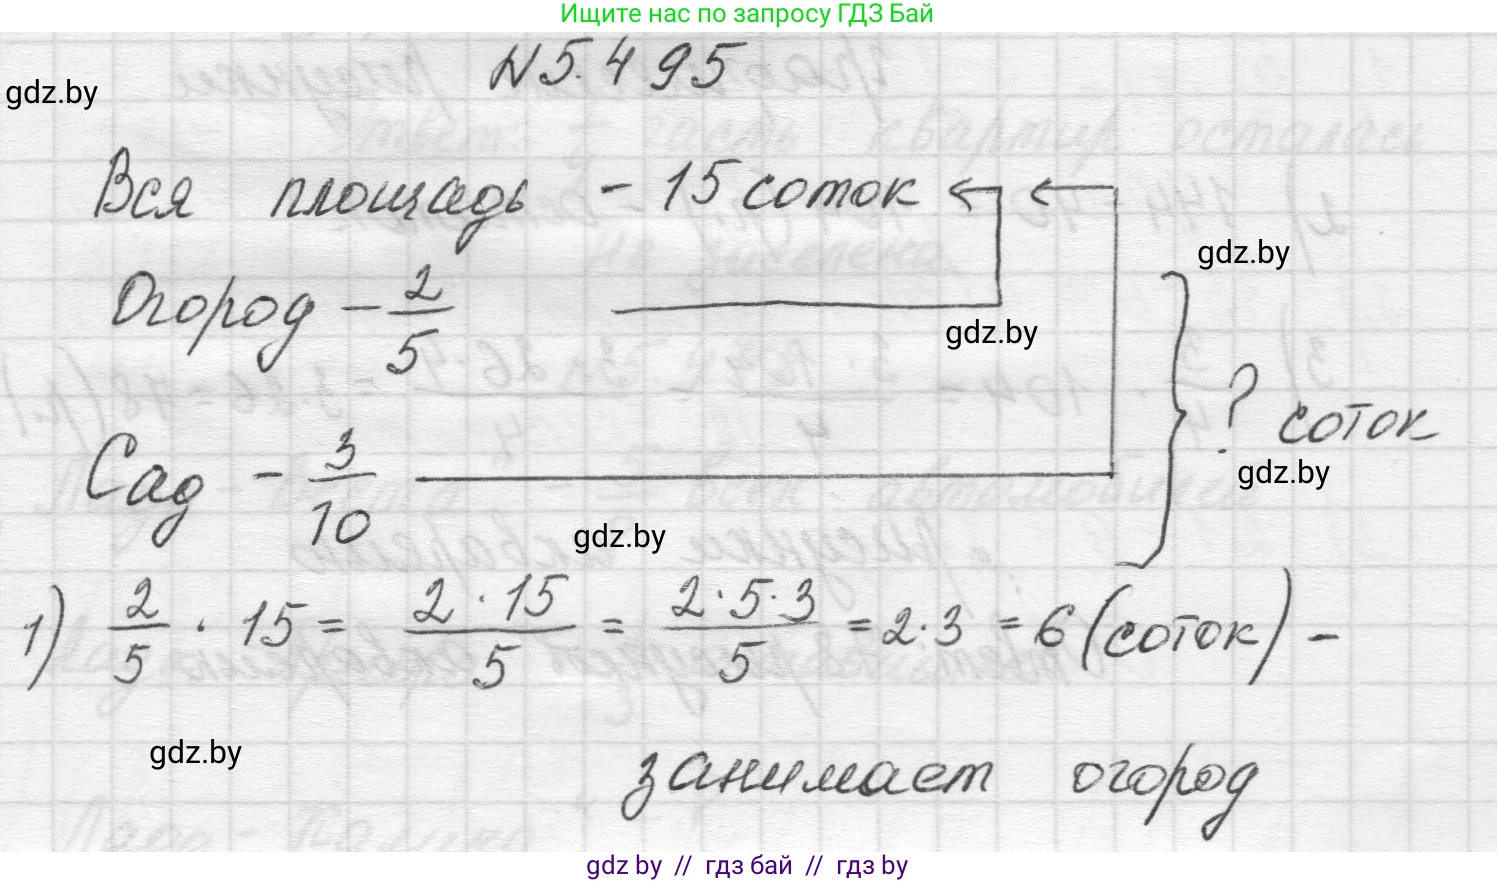 Ищите нас по запросу ГДЗ Бай
N 5.495
gdz.by
Вся площадь - 15 соток
gdz.by
Огород - 2/5
gdz.by
? соток
gdz.by
Сад - 3/10
gdz.by
1) 2/5 · 15 = 2 · 15/5 = 2·5·3/5 = 2·3 = 6 (соток) -
gdz.by
занимает огород
gdz by // гдз бай // гдз by